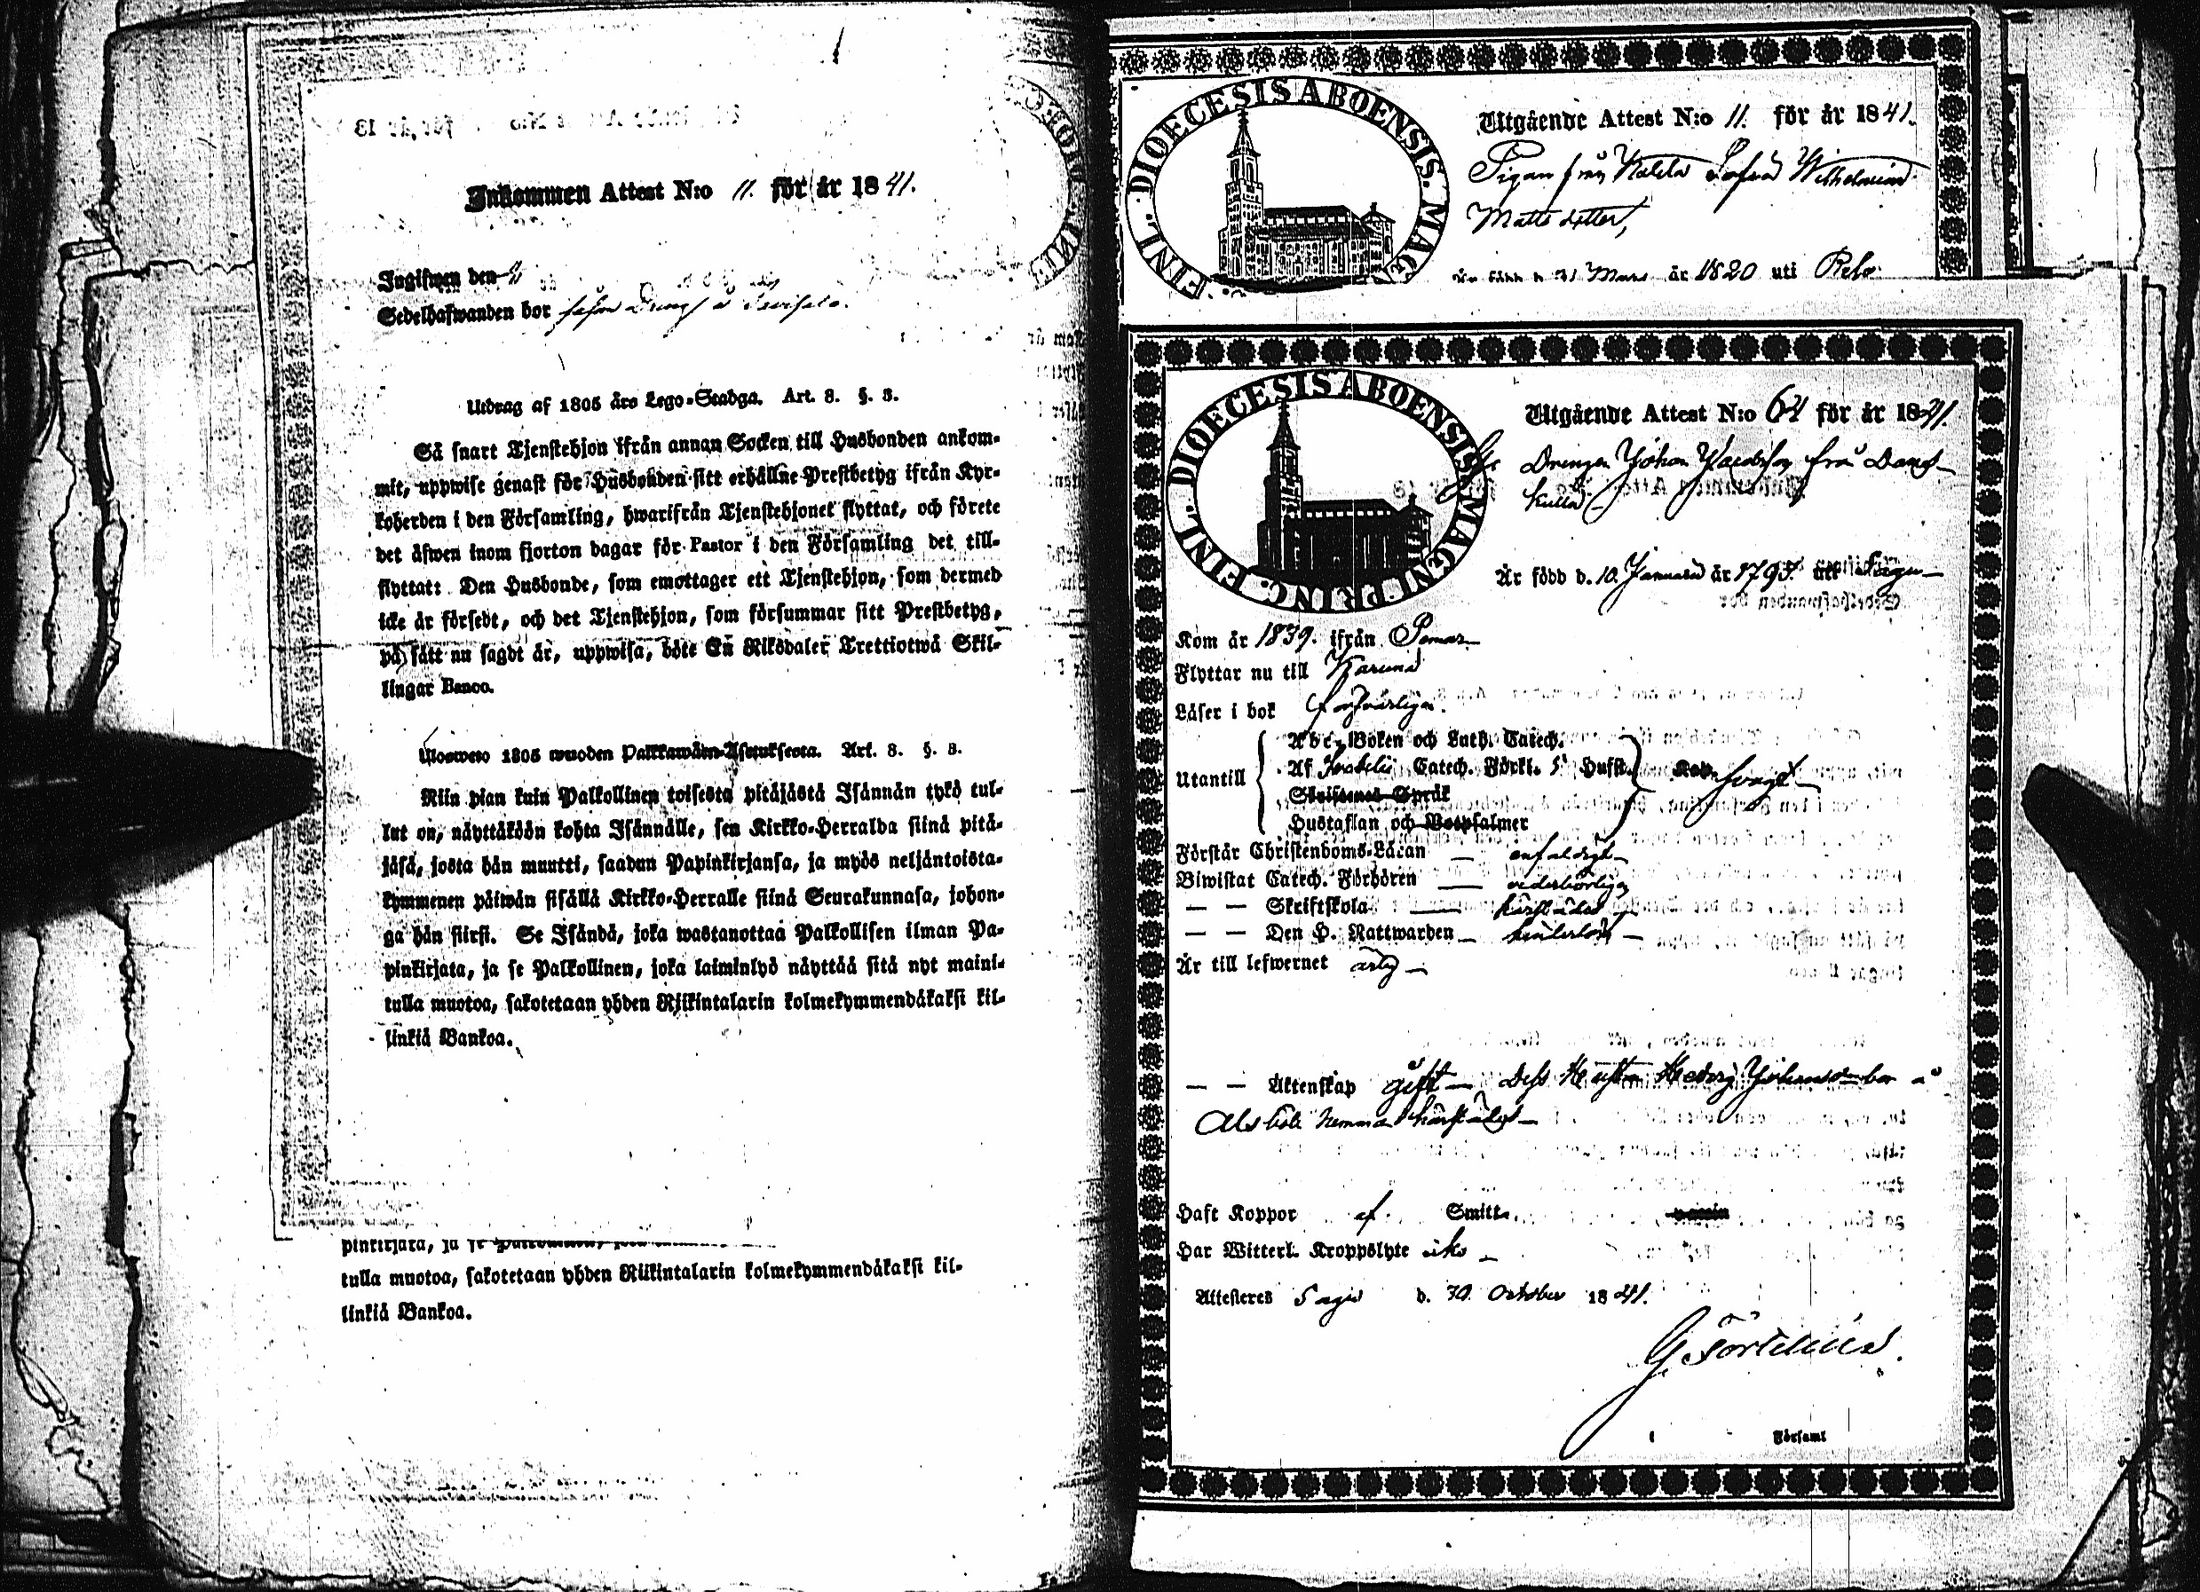 Inkommen Attest N:o 11. för år 1841.
Ingifwen den
Sedelhafwanden bor
Utdrag af 1805 års Lego-Stadga. Art. 8. §. 3.
Så snart Tjenstehjon ifrån annan Socken till Husbonden ankom-
mit, uppwise genast för Husbonden sitt erhållne Prestbetyg ifrån Kyr-
koherden i den Församling, hwarifrån Tjenstehjonet flyttat, och förete
det äfwen inom fjorton dagar för Pastor i den Församling det till-
flyttat: Den Husbonde, som emottager ett Tjenstehjon, som dermed
icke är försedt, och det Tjenstehjon, som försummar sitt Prestbetyg,
på sätt nu sagdt är, uppwisa, böte En Riksdaler Trettiotwå Skil-
lingar Banco.
Ulosweto 1805 wuoden Palkkawäen-Asetuksesta. Art. 8. §. 3.
Niin pian kuin Palkollinen toisesta pitäjästä Isännän tykö tul-
lut on, näyttäköön kohta Isännälle, sen Kirkko-Herralda siinä pitä-
jäsä, josta hän muutti, saadun Papinkirjansa, ja myös neljäntoista-
kymmenen päiwän sisällä Kirkko-Herralle siinä Seurakunnasa, johon-
ga hän siirsi. Se Isändä, joka wastanottaa Palkollisen ilman Pa-
pinkirjata, ja se Palkollinen, joka laiminlyö näyttää sitä nyt maini-
tulla muotoa, sakotetaan yhden Riikintalarin kolmekymmendäkaksi kil-
linkiä Bankoa.
pinkirjata, ja se Palkollinen,
tulla muotoa, sakotetaan yhden Riikintalarin kolmekymmendäkaksi kil-
linkiä Bankoa.
FINL. DIOECESIS ABOENSIS. MAG
Utgående Attest N:o 11. för år 1841.
Pigan från Sofia Wilhelmina
Matts dotter,
Är född d. 31 Mars år 1820 uti
FINL. DIOECESIS ABOENSIS MAGNI PRINC.
Utgående Attest N:o 64 för år 1841.
Drengen Johan Jacobsson från
kulla
Är född d. 10 Januari år 1795. uti Sagu
Kom år 1839. ifrån Pemar
Flyttar nu till Karuna
Läser i bok försvarligen.
Abc-Boken och Luth. Catech.
Utantill Af Svebelii Catech. Förkl. 5 Hufst. svagt
Skriftenes Språk
Hustaflan och Botpsalmer
Förstår Christendoms-Läran enfaldigt
Biwistat Catech. Förhören wederbörligen
— — Skriftskola härstädes
— — Den H. Nattwarden
Är till lefwernet ärlig
— — Äktenskap gift — Dess Hustru Hedvig Johansd. bor å
hemman härstädes
Haft Koppor af Smitta.
Har Witterl. Kroppslyte icke
Attesteres Sagu d. 30 October 1841.
G Törtenius.
Församl